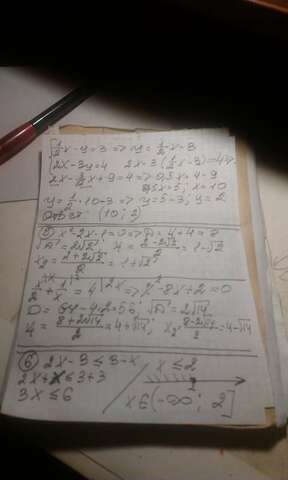 {1/2x-y=3=>y=1/2x-3
{2x-3y=4 2x-3(1/2x-3)=4
2x-3/2x+9=4=>0,5x=4-9
0,5x=5; x=10
y=1/2·10-3=>y=5-3; y=2
Ответ: (10; 2)
⑤ x²-2x-1=0=>D=4+4=8
√D=2√2; x₁=(2-2√2)/2=1-√2
x₂=(2+2√2)/2=1+√2
x/2+1/x=4 |2x => x²-8x+2=0
D=64-4·2=56; √D=2√14
x₁=(8+2√14)/2=4+√14; x₂=(8-2√14)/2=4-√14
⑥ 2x-3≤3-x
2x+x≤3+3
3x≤6
x≤2
2
x∈(-∞; 2]